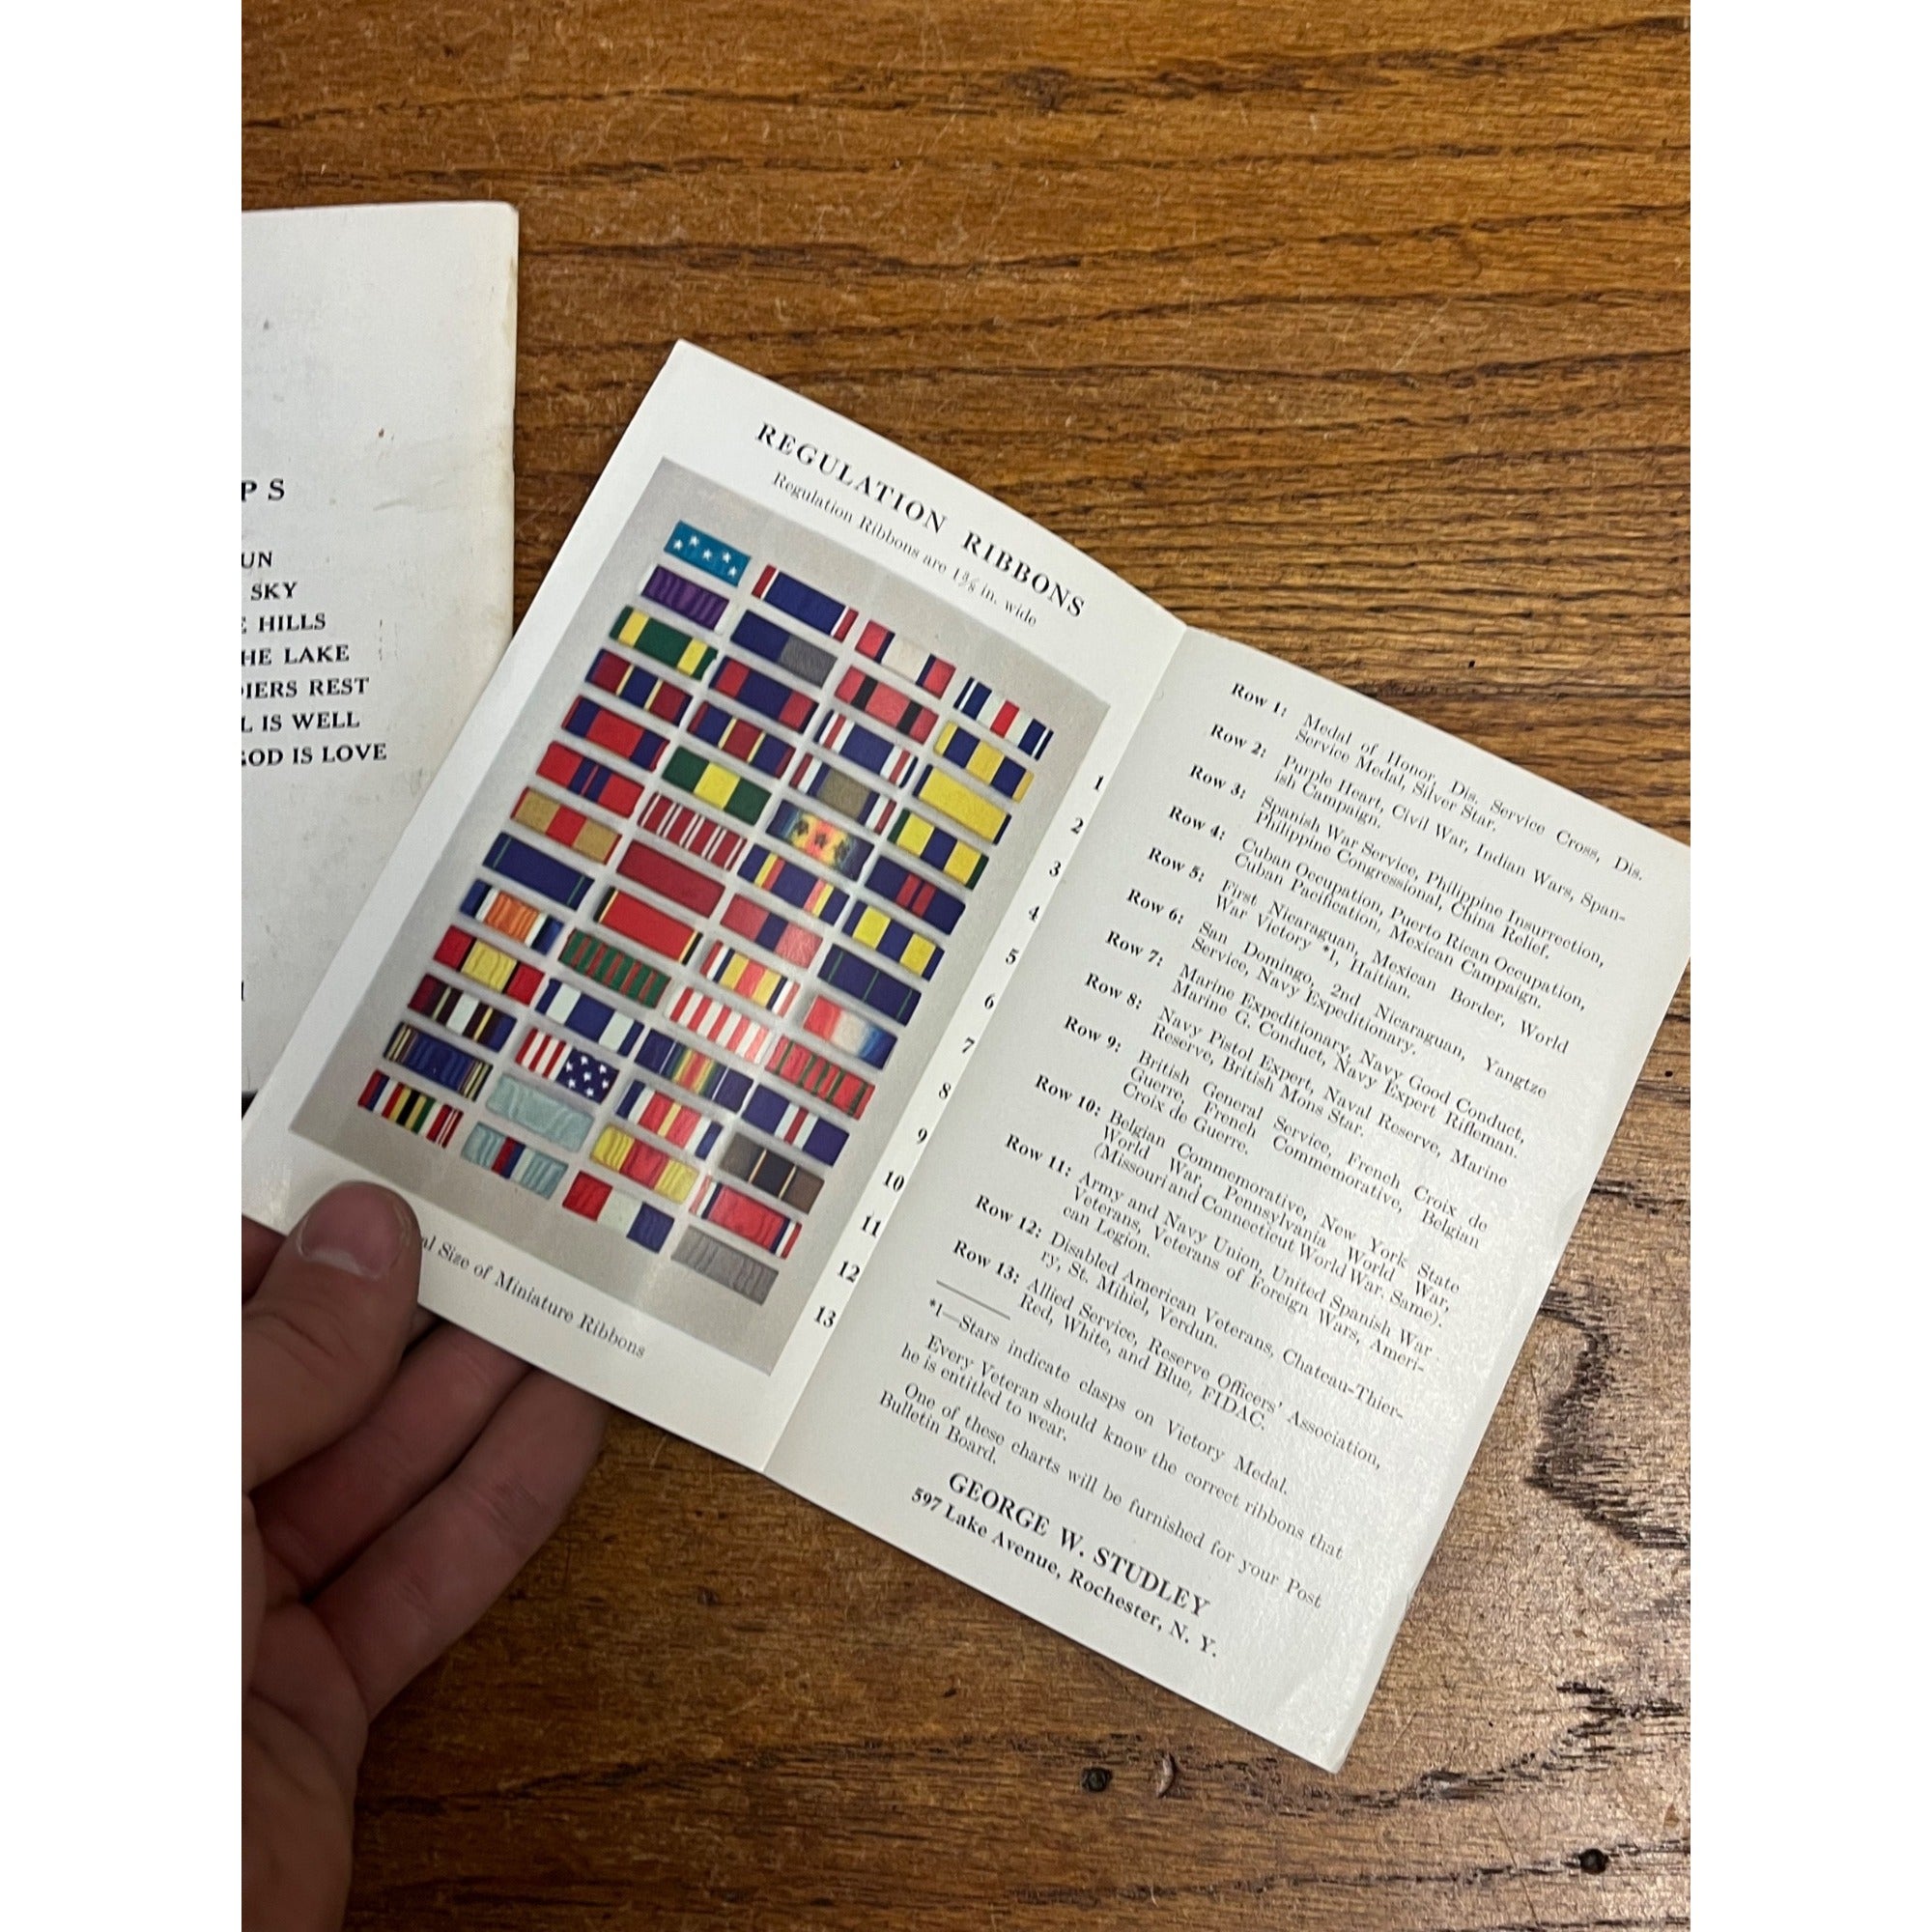 P S
UN
SKY
E HILLS
HE LAKE
DIERS REST
L IS WELL
GOD IS LOVE
REGULATION RIBBONS
Regulation Ribbons are 1 3/8 in. wide
1
2
3
4
5
6
7
8
9
10
11
12
13
al Size of Miniature Ribbons
Row 1: Medal of Honor, Dis. Service Cross, Dis.
Service Medal, Silver Star.
Row 2: Purple Heart, Civil War, Indian Wars, Span-
ish Campaign.
Row 3: Spanish War Service, Philippine Insurrection,
Philippine Congressional, China Relief.
Row 4: Cuban Occupation, Puerto Rican Occupation,
Cuban Pacification, Mexican Campaign.
Row 5: First Nicaraguan, Mexican Border, World
War Victory *1, Haitian.
Row 6: San Domingo, 2nd Nicaraguan, Yangtze
Service, Navy Expeditionary.
Row 7: Marine Expeditionary, Navy Good Conduct,
Marine G. Conduct, Navy Expert Rifleman.
Row 8: Navy Pistol Expert, Naval Reserve, Marine
Reserve, British Mons Star.
Row 9: British General Service, French Croix de
Guerre, French Commemorative, Belgian
Croix de Guerre.
Row 10: Belgian Commemorative, New York State
World War, Pennsylvania World War,
(Missouri and Connecticut World War. Same).
Row 11: Army and Navy Union, United Spanish War
Veterans, Veterans of Foreign Wars, Ameri-
can Legion.
Row 12: Disabled American Veterans, Chateau-Thier-
ry, St. Mihiel, Verdun.
Row 13: Allied Service, Reserve Officers' Association,
Red, White, and Blue, FIDAC.
*1—Stars indicate clasps on Victory Medal.
Every Veteran should know the correct ribbons that
he is entitled to wear.
One of these charts will be furnished for your Post
Bulletin Board.
GEORGE W. STUDLEY
597 Lake Avenue, Rochester, N. Y.